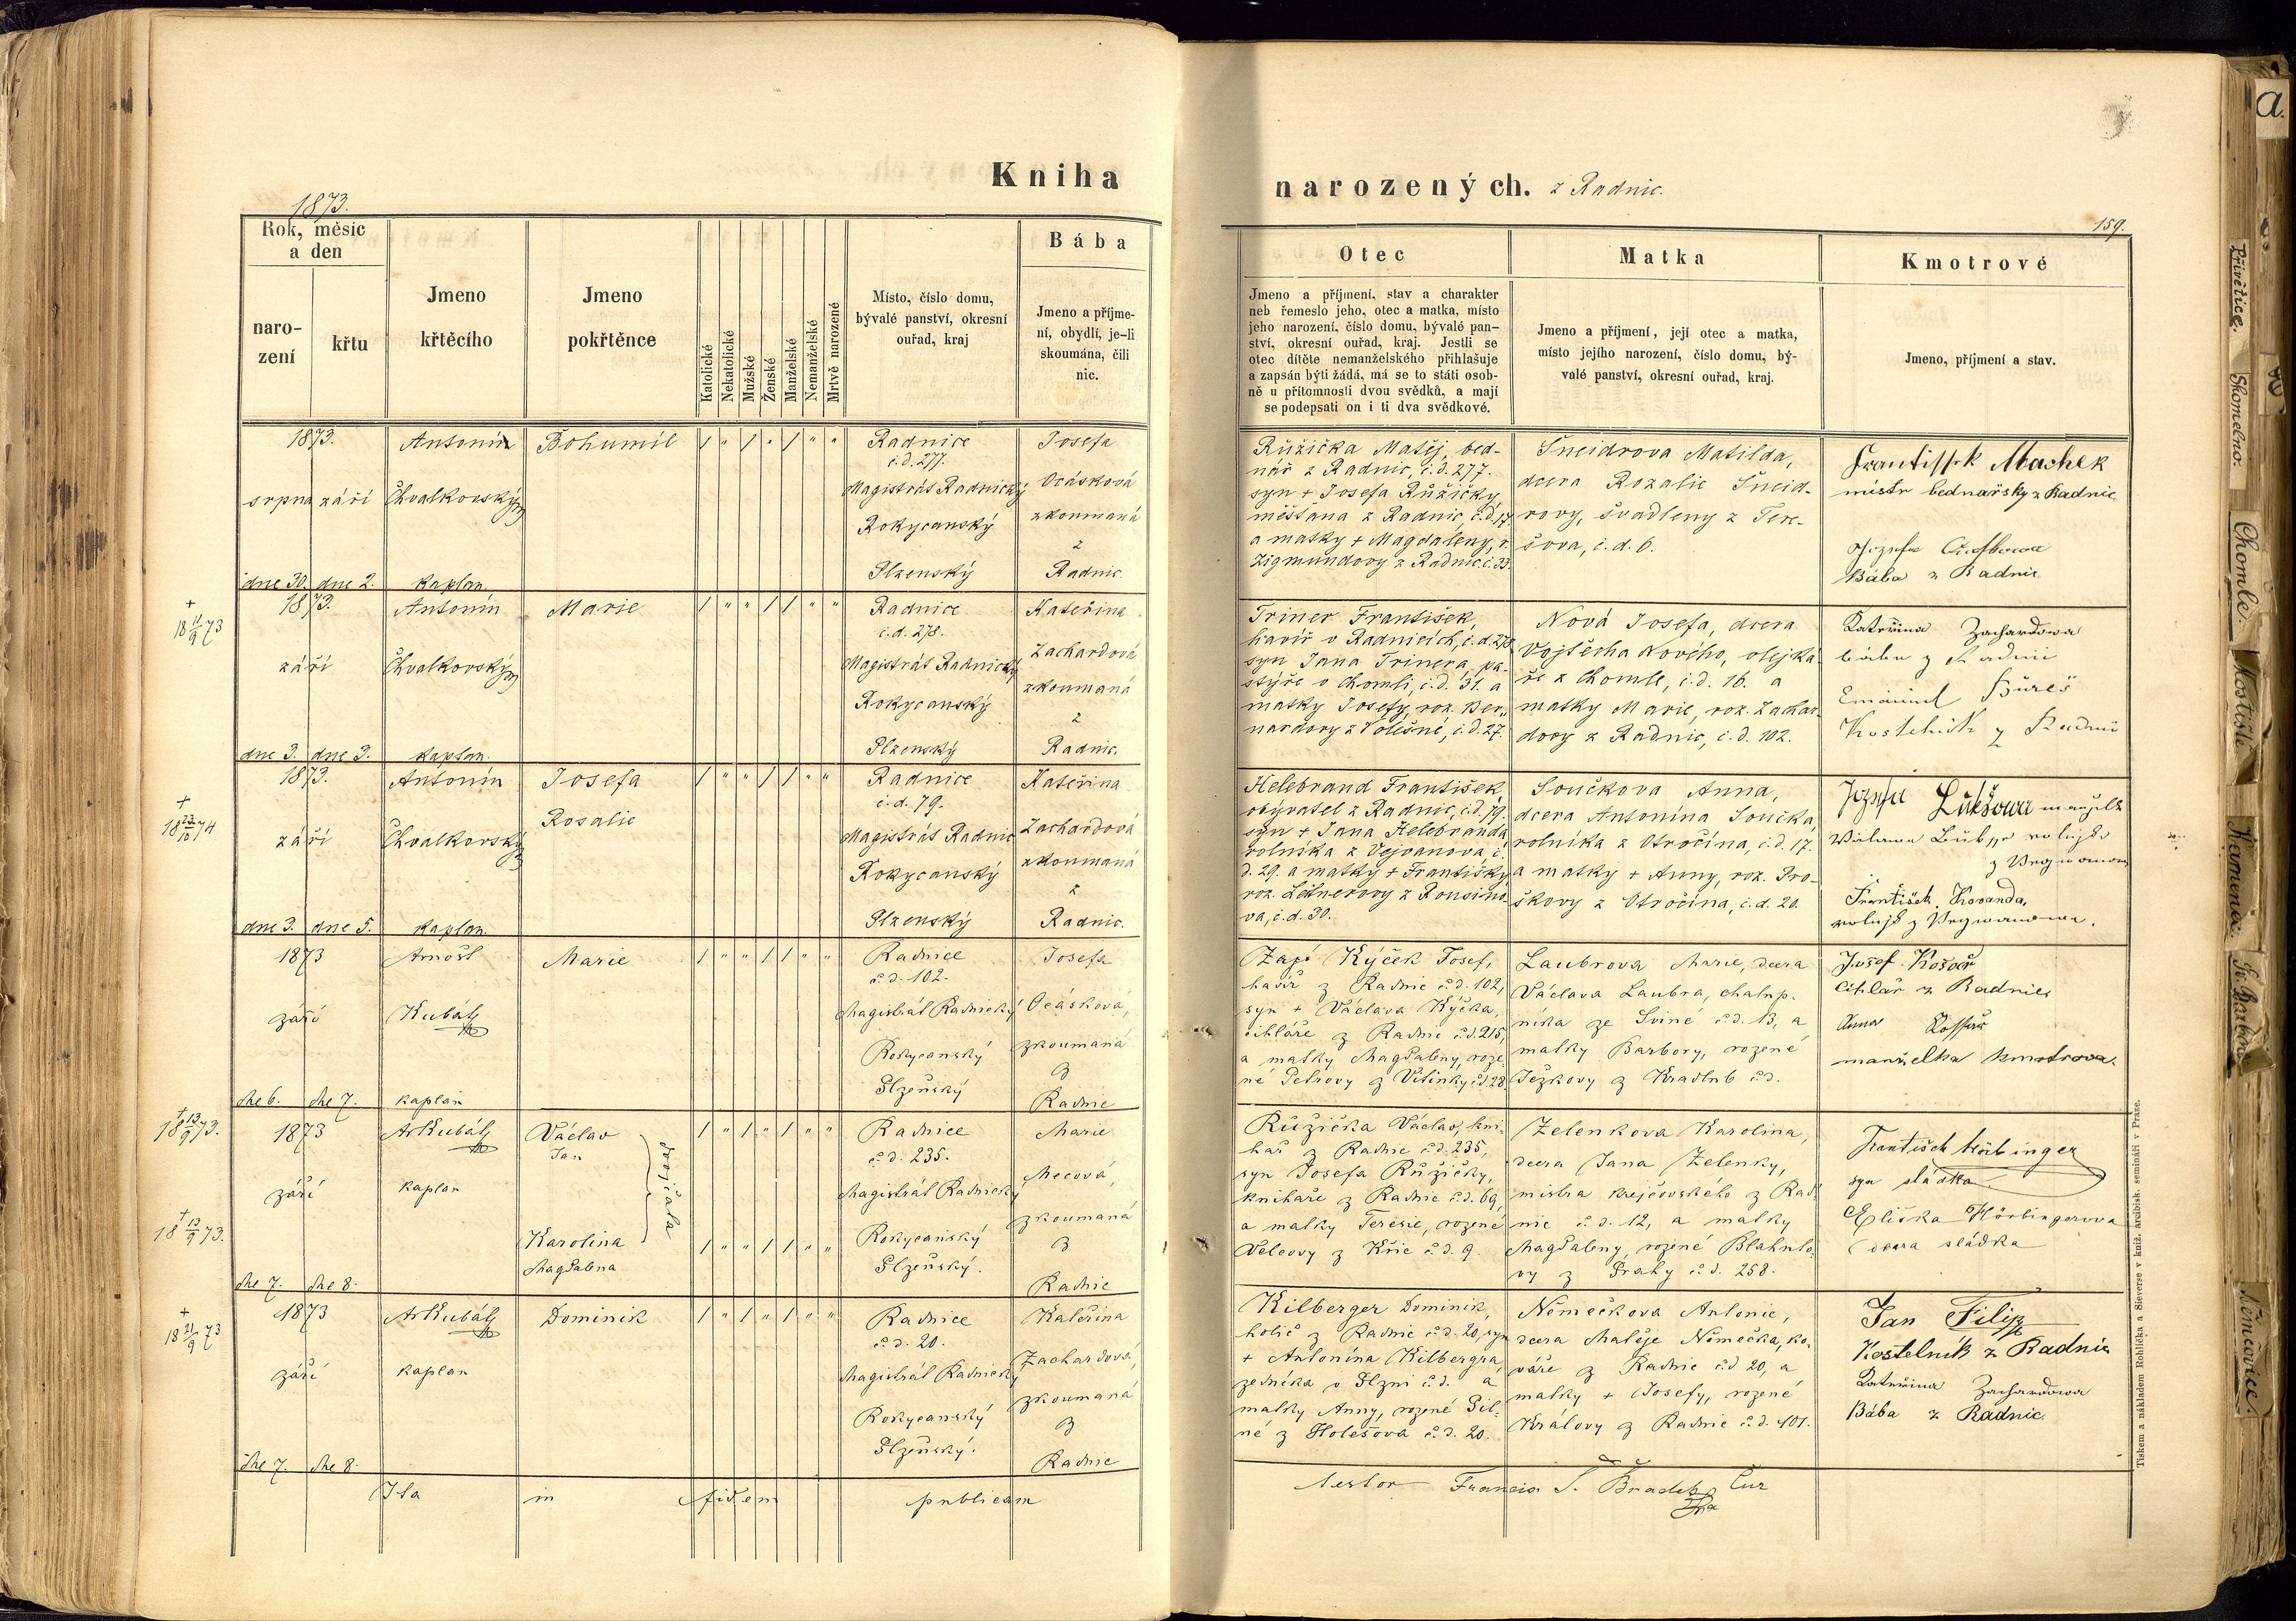 Kniha
narozených. z Radnic.
1873.
159.
Rok, měsíc
a den
naro-
zení
křtu
Jmeno
křtěcího
Jmeno
pokřtěnce
Katolické
Nekatolické
Mužské
Ženské
Manželské
Nemanželské
Mrtvě narozené
Místo, číslo domu,
bývalé panství, okresní
ouřad, kraj
Bába
Jmeno a příjme-
ní, obydlí, je-li
skoumána, čili
nic.
Otec
Jmeno a příjmení, stav a charakter
neb řemeslo jeho, otec a matka, místo
jeho narození, číslo domu, bývalé pan-
ství, okresní ouřad, kraj. Jestli se
otec dítěte nemanželského přihlašuje
a zapsán býti žádá, má se to státi osob-
ně u přítomnosti dvou svědků, a mají
se podepsati on i ti dva svědkové.
Matka
Jmeno a příjmení, její otec a matka,
místo jejího narození, číslo domu, bý-
valé panství, okresní ouřad, kraj.
Kmotrové
Jmeno, příjmení a stav.
1873.
srpna září
dne 30. dne 2.
Antonín
Chvalkovský
kaplan.
Bohumil
/ " / " / " "
Radnice
č.d. 277.
Magistrát Radnický
Rokycanský
Plzenský
Josefa
Ocásková
zkoumaná
z
Radnic.
Růžička Matěj, bed-
nář z Radnic, č.d. 277.
syn + Josefa Růžičky,
měšťana z Radnic, č.d. 17
a matky + Magdaleny, r.
Zigmundovy z Radnic č. 33.
Šneidrova Matilda,
dcera Rozalie Šneid-
rovy, švadleny z Tere-
šova, č.d. 6.
Frantissek Machek
mistr bednařsky z Radnic
Bába z Radnic
+
18 11/9 73
1873.
září
dne 3. dne 3.
Antonín
Chvalkovský
kaplan.
Marie
/ " " / / " "
Radnice
č.d. 278.
Magistrát Radnický
Rokycanský
Plzenský
Kateřina
Zachardová
zkoumaná
z
Radnic.
Triner František,
havíř v Radnicích, č.d. 278
syn Jana Trinera, pa-
stýře v Chomli, č.d. 31. a
matky Josefy, roz. Ber-
nardovy z Volešné, č.d. 27.
Nová Josefa, dcera
Vojtěcha Nového, olejká-
ře z Chomle, č.d. 16. a
matky Marie, roz. Zachar-
dovy z Radnic, č.d. 102.
Kateřina Zachardowa
bába z Radnic
+
18 23/10 74
1873.
září
dne 3. dne 5.
Antonín
Chvalkovský
kaplan
Josefa
Rosalie
/ " " / / " "
Radnice
č.d. 79.
Magistrát Radnic
Rokycanský
Plzenský
Kateřina
Zachardová
zkoumaná
z
Radnic.
Helebrand František,
obývatel z Radnic, č.d. 79.
syn + Jana Helebranda
rolníka z Vejvanova, č.
d. 29. a matky + Františky
roz. Leitnerovy z Bousino-
va, č.d. 30.
Součkova Anna,
dcera Antonína Součka,
rolníka z Otročína, č.d. 17.
a matky + Anny, roz. Pro-
škovy z Otročína, č.d. 20.
František Kovanda,
1873
září
dne 6. dne 7.
Arnošt
Kubát
kaplan
Marie
/ " " / / " "
Radnice
č.d. 102.
Magistrát Radnický
Rokycanský
Plzeňský
Josefa
Ocásková,
zkoumaná
z
Radnic
Kýček Josef,
havíř z Radnic č.d. 102,
syn + Václava Kýčka,
cihláře z Radnic č.d. 215,
a matky Magdaleny, roze-
né Petrovy z Vitinky č.d. 28
Laubrova Marie, dcera
Václava Laubra, chalup-
níka ze Sviné č.d. 13, a
matky Barbory, rozené
Ježkovy z Hradlub č.d.
Josef Košař
Cihlář z Radnic
Anna
manželka kmotrova.
+
18 13/9 73.
+
18 13/9 73.
1873
září
dne 7. dne 8.
Ar Kubát
kaplan
Václav
Jan
Karolina
Magdalena
dvojčata
/ " / " / " "
/ " " / / " "
Radnice
č.d. 235.
Magistrát Radnický
Rokycanský
Plzeňský.
Marie
Mecová,
zkoumaná
z
Radnic
Růžička Václav, kni-
hař z Radnic č.d. 235,
syn Josefa Růžičky,
knihaře z Radnic č.d. 69,
a matky Teresie, rozené
Velcovy z Křic č.d. 9.
Zelenkova Karolina,
dcera Jana Zelenky,
mistra krejčovského z Rad-
nic č.d. 12, a matky
Magdaleny, rozené Blahuto-
vy z Prahy č.d. 258.
František Hörbinger
syn sládka
Eliška Hörbingerova
dcera sládka
+
18 21/9 73
1873
září
dne 7. dne 8.
Ar Kubát
kaplan
Dominik
/ " / " / " "
Radnice
č.d. 20.
Magistrát Radnický
Rokycanský
Plzeňský.
Kateřina
Zachardová,
zkoumaná
z
Radnic
Kilberger Dominik,
holič z Radnic č.d. 20, syn
+ Antonína Kilbergra,
zedníka v Plzni č.d. a
matky Anny, rozené Pil-
né z Holešova č.d. 20.
Němečkova Antonie,
dcera Matěje Němečka, ko-
váře z Radnic č.d 20, a
matky + Josefy, rozené
Královy z Radnic č.d. 101.
Jan Filip
Kostelník z Radnic
Kateřina Zachardowa
Bába z Radnic
Ita in fidem publicam
testor
Tiskem a nákladem Rohlíčka a Sieverse v kníž. arcibisk. semináři v Praze.
a.
Přívětice.
Skomelno.
Chomle.
Mostiště
Kamenice.
Sv. Barbora
Němčovice.